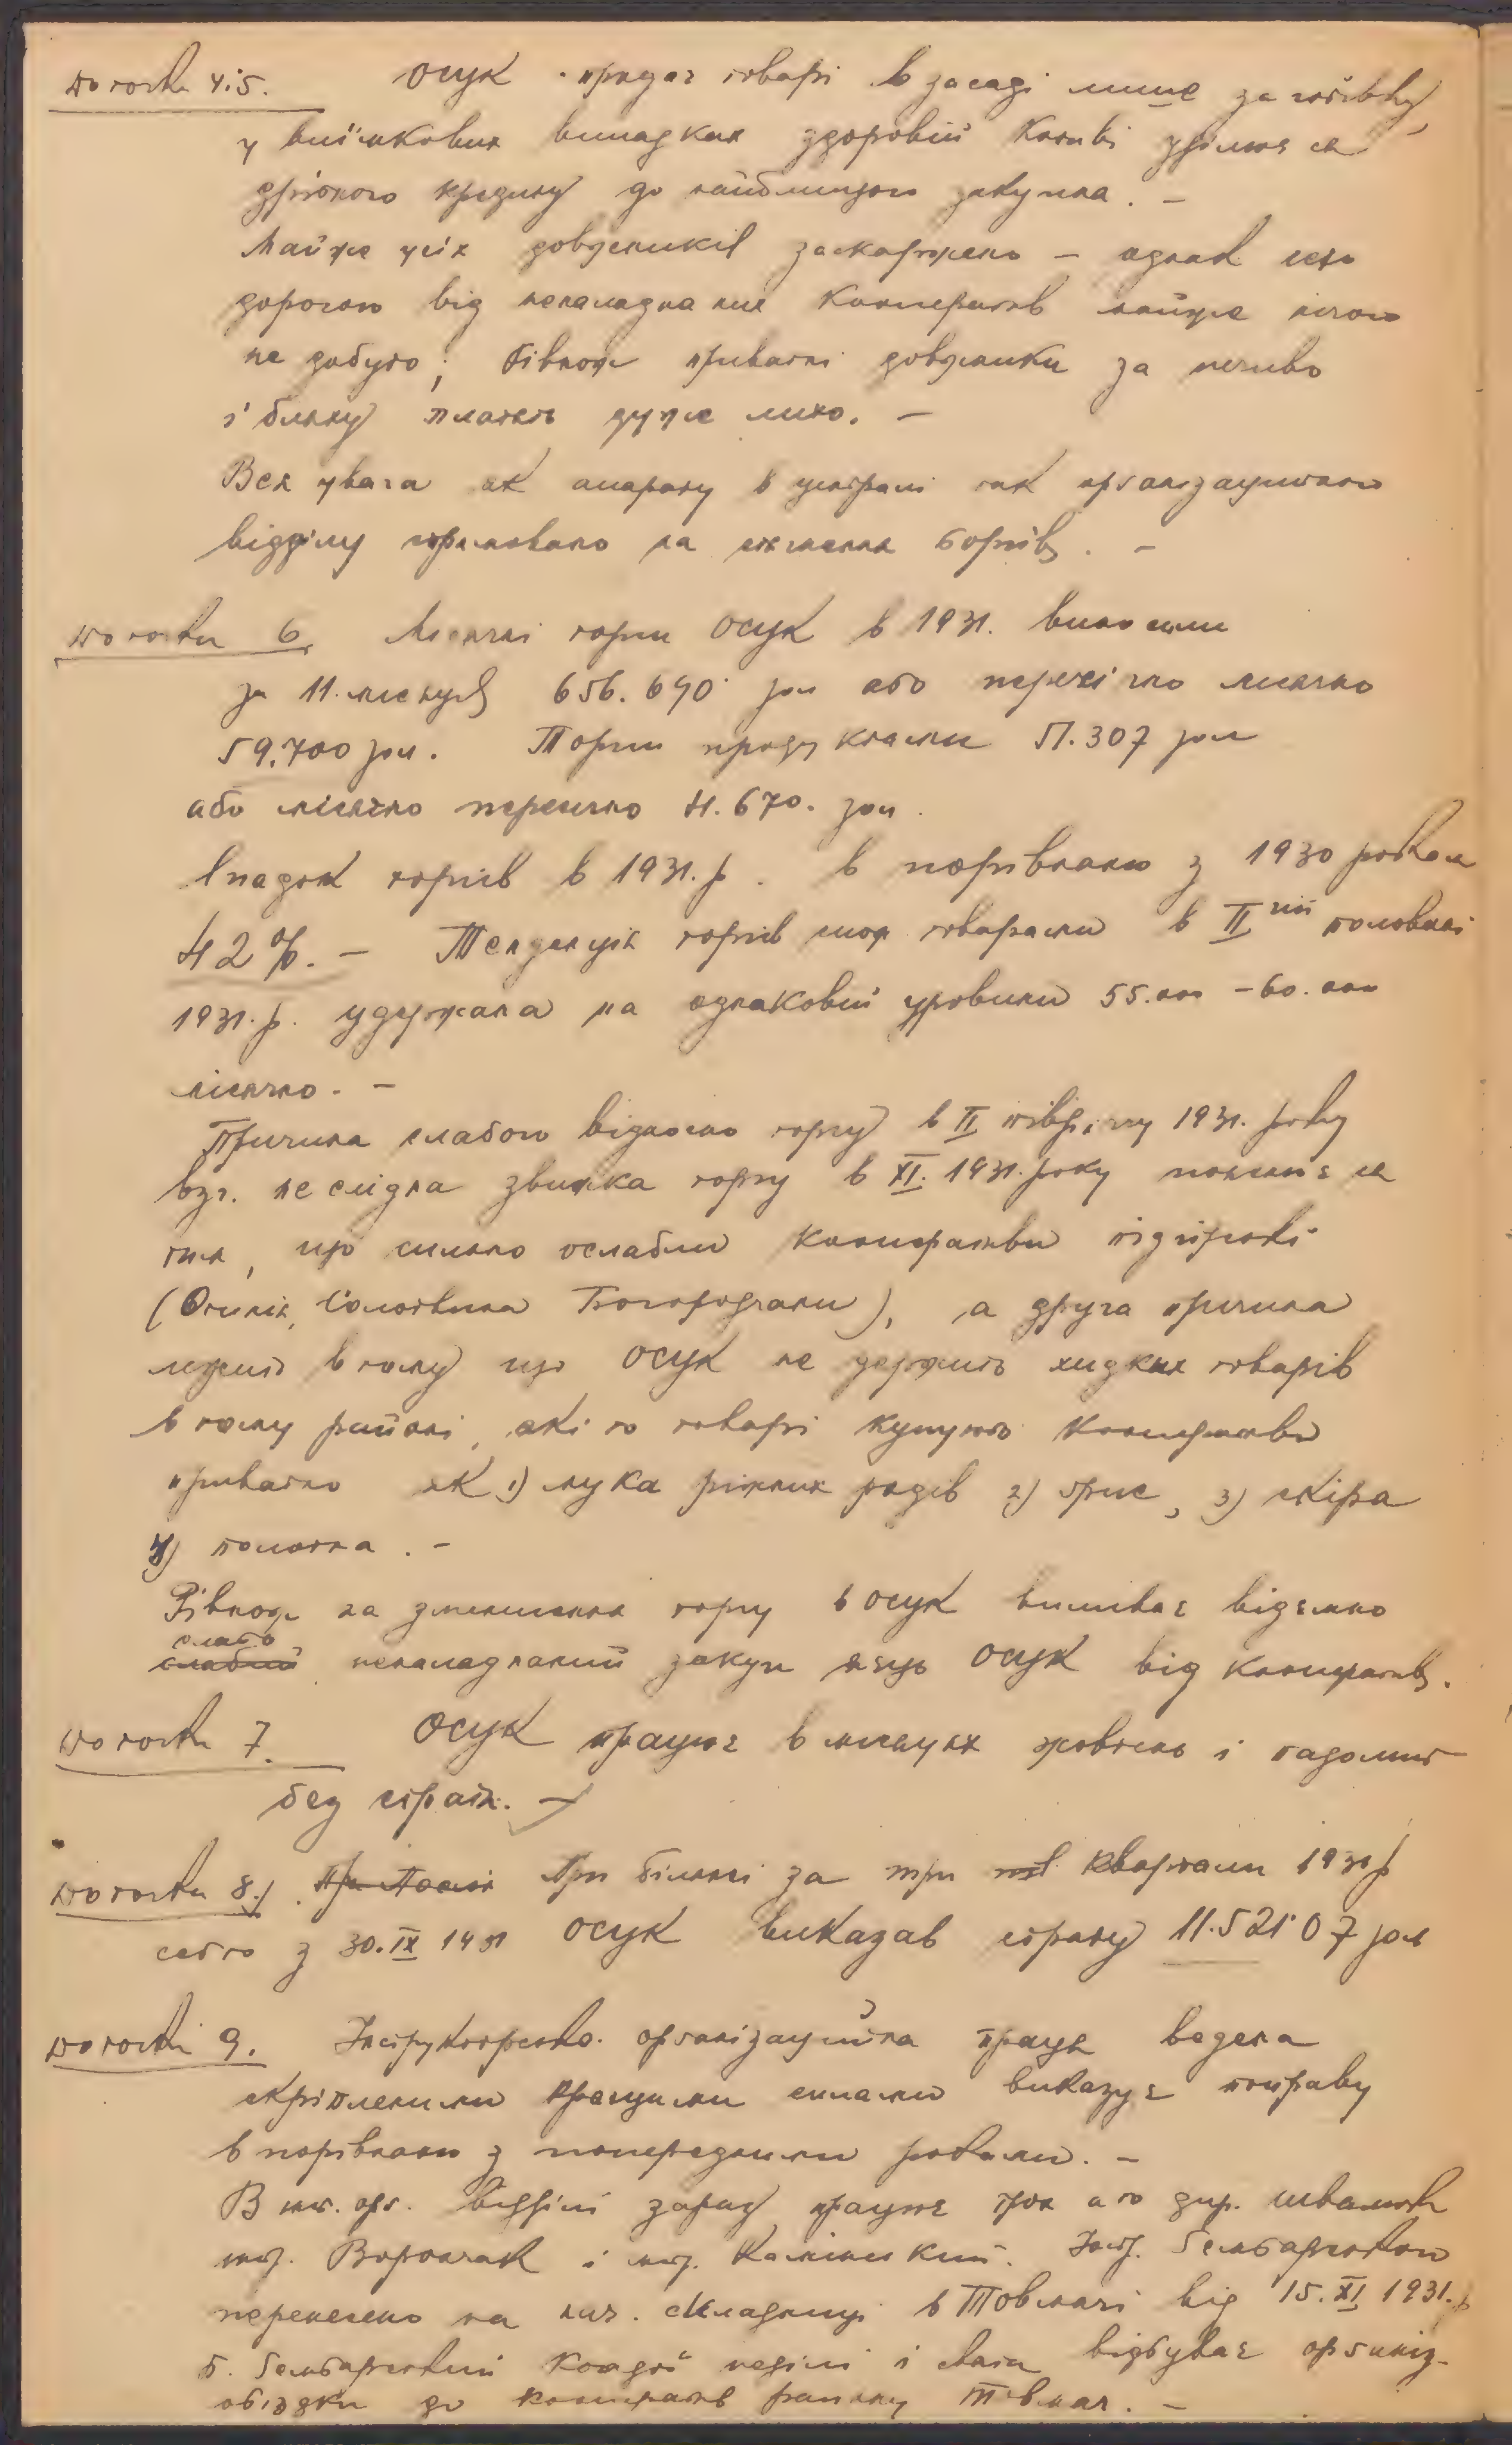 До точки 4 і 5. ОСУК продає товарі в засаді лише за готівку,
у виїмкових випадках здоровій Кооп-ві уділює ся
дрібного кредиту до найблищого закупна. –
Майже усіх довжників заскаржено – однак сею
дорогою від неналадна них Кооператив майже нічого
не добуто; Рівнож приватні довжники за печиво
і блаху платять дуже лихо. –
Вся увага як апарату в централі так орґанізаційного
відділу спрямовано на стягнення боргів. –
До точки 6. Місячні торги ОСУК в 1931. виносили
за 11. місяців 656.690 зол або пересічно місячно
59.700 зол. Торги продуктами 51.307 зол
або місячно пересічно 4.670. зол.
Упадок торгів в 1931.р. в порівнаню з 1930 роком
42%. – Тенденція торгів товарами в II гій половині
1931.р. удержана на однаковій уровени 55.000 – 60.000
місячно. –
Причина слабого відносно торгу в II піврічу 1931. року
взг. не слідна звижка торгу в XI. 1931. року пояснює ся
тим, що сильно ослабли Кооперативи підгірські
(Отинія, Солотвина Богородчани), а друга причина
лежить в тому що ОСУК не держить хидких товарів
в тому районі, які то товарі купують Кооперативи
приватно як 1) мука ріжних родів 2) ґрис, 3) скіра
4) полотна. –
Рівнож на зменшення торгу в ОСУК впливає відємно
слабо
слабий неналаднаний закуп яєць ОСУК від Кооператив.
До точки 7. ОСУК працює в місяцях жовтень і падолист
без страт. –
До точки 8.) При Після При білянсі за три кварталі 1931 р
себто з 30.IX 1931 ОСУК виказав страту 11.521.07 зол
До точки 9. Інструкторсько. орґанізаційна праця ведена
скріпленими працьми силами виказує поправу
в порівнаню з попередними роками. –
В інс. орґ. відділі зараз працює трох а то дир. Шваюк
інс. Ворончак і інс. Камінський. Інс. Ґембаровського
перенесено на кич. складниці в Товмачі від 15.XI 1931.р
п. Ґембаровський Кождої неділі і свята відбуває орґаніз-
обїздки до кооператив району Товмач. –